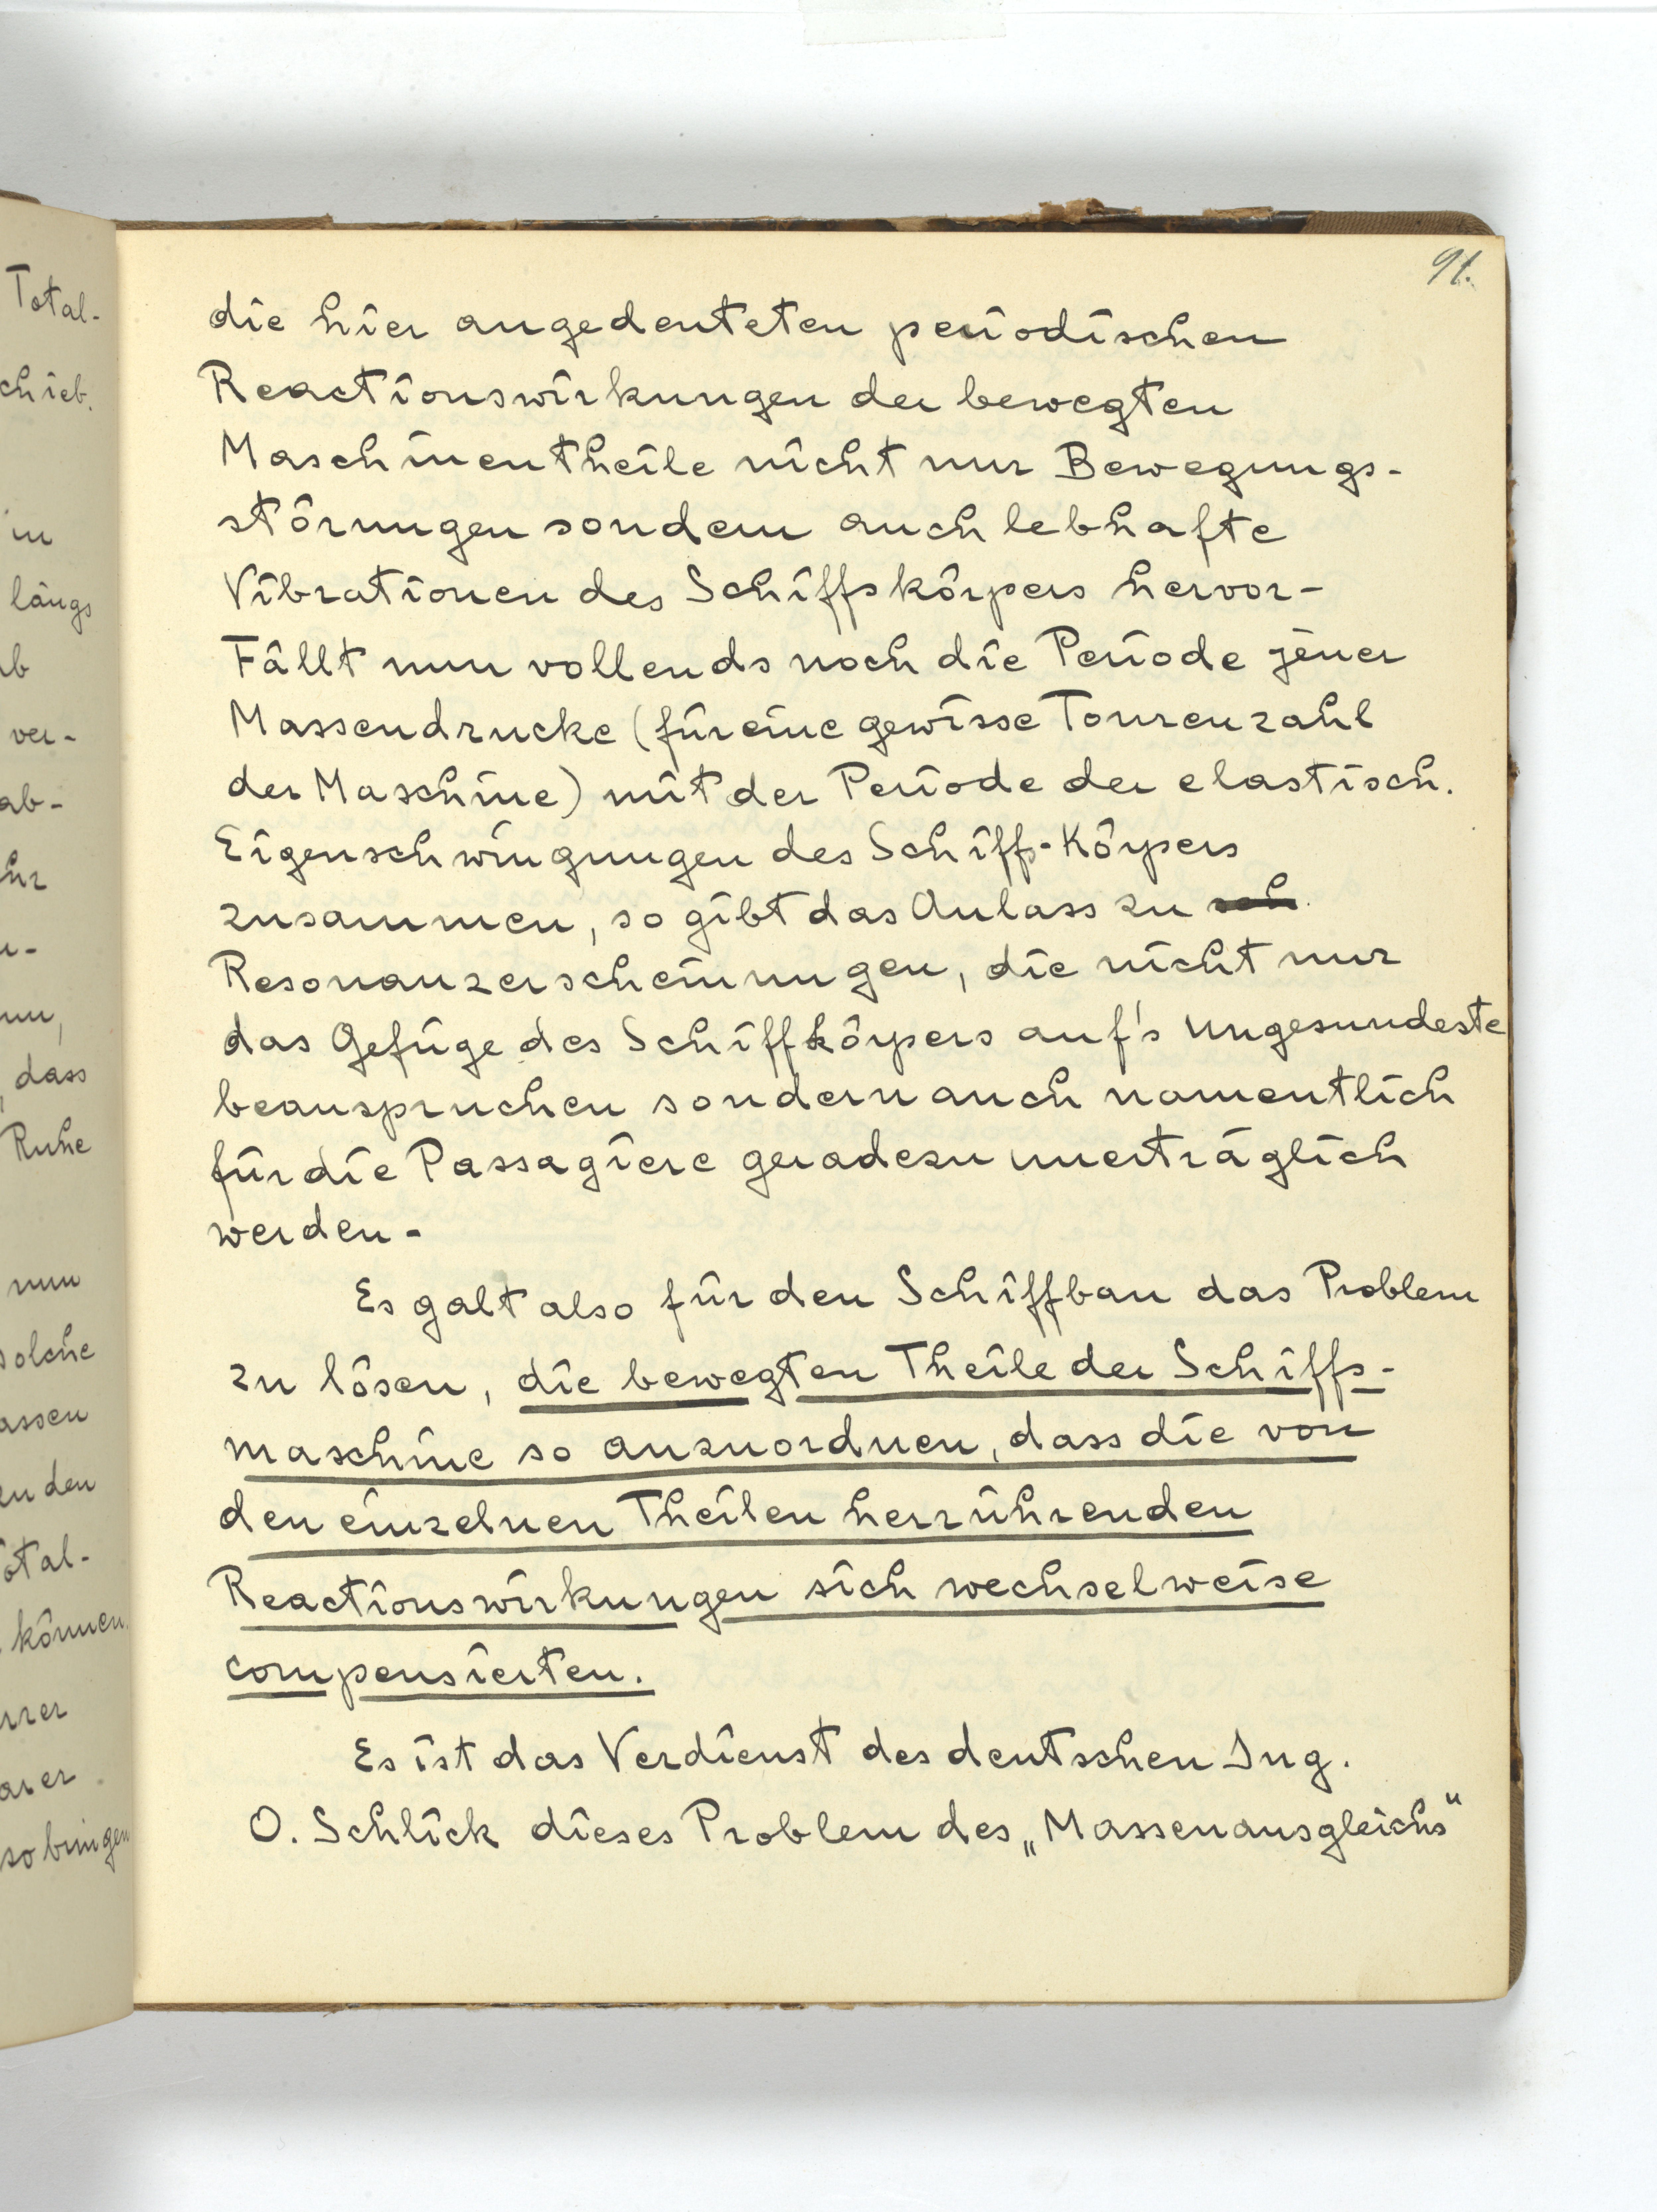 91.
die hier angedeuteten periodischen
Reactionswirkungen der bewegten
Maschinentheile nicht nur Bewegungs-
störungen sondern auch lebhafte
Vibrationen des Schiffskörpers hervor-
Fällt nun vollends noch die Periode jener
Massendrucke (für eine gewisse Tourenzahl
der Maschine) mit der Periode der elastisch.
Eigenschwingungen des Schiff-Körpers
zusammen, so gibt das Anlass zu sch
Resonanzerscheinungen, die nicht nur
das Gefüge des Schiffkörpers auf's Ungesundeste
beanspruchen sondern auch namentlich
für die Passagiere geradezu unerträglich
werden-
Es galt also für den Schiffbau das Problem
zu lösen, die bewegten Theile der Schiffs-
maschine so anzuordnen, dass die von
den einzelnen Theilen herrührenden
Reactionswirkungen sich wechselweise
compensierten.
Es ist das Verdienst des deutschen Ing.
O. Schlick dieses Problem des „Massenausgleichs"
Total-
chieb.
in
längs
b
ver-
ab-
hr
dass
Ruhe
nun
solche
assen
zu den
otal-
können.
rrer
arer
so bringen